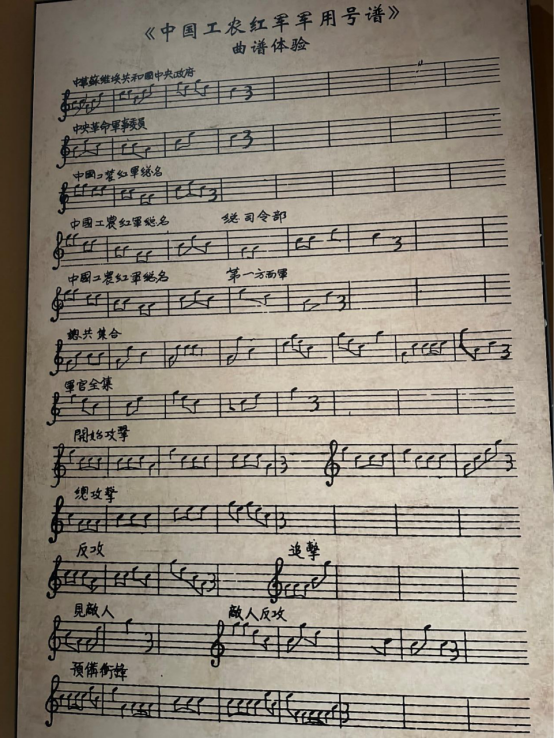 《中国工农红军军用号谱》
曲谱体验
中華蘇維埃共和國中央政府
中央革命軍事委員
中國工農紅軍總名
中國工農紅軍總名 總司令部
中國工農紅軍總名 第一方面軍
總共集合
軍官全集
開始攻擊
總攻擊
反攻 追擊
見敵人 敵人反攻
預備衝鋒